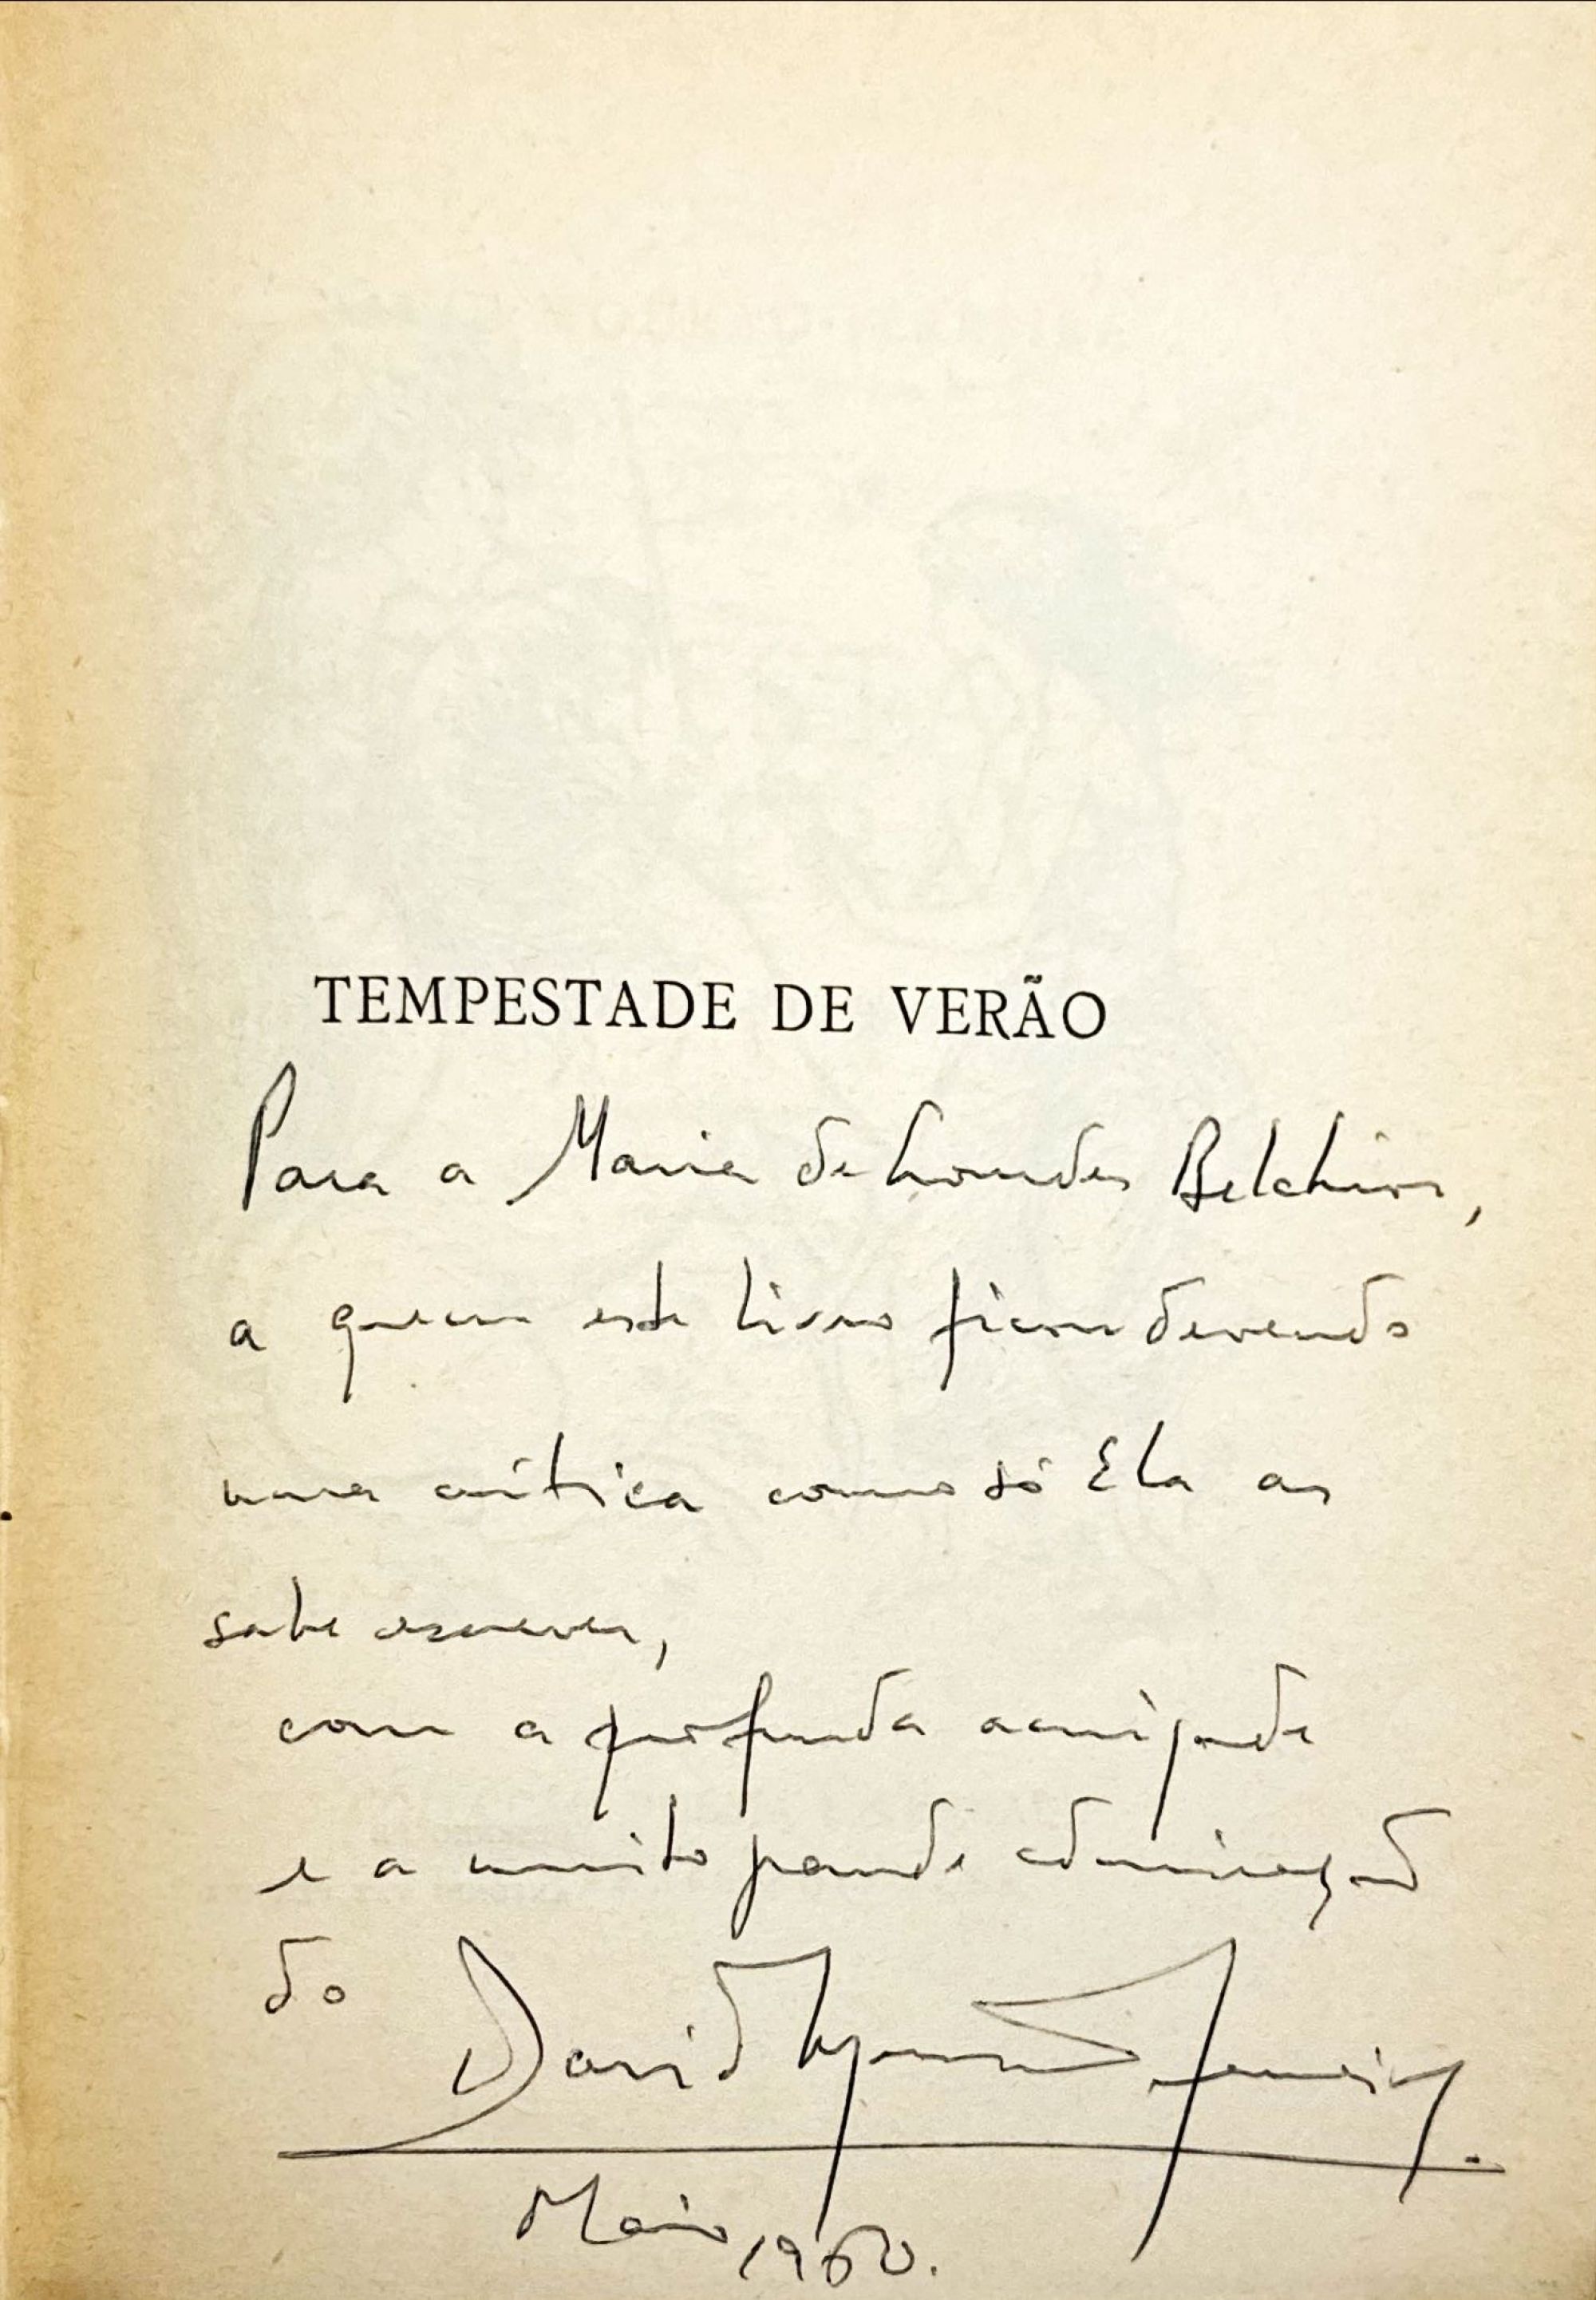 TEMPESTADE DE VERÃO
Para a Maria de Lourdes Belchior,
a quem este livro ficou devendo
uma crítica como só Ela as
sabe escrever,
com a profunda amizade
e a muito grande admiração
do David Mourão-Ferreira.
Maio, 1960.